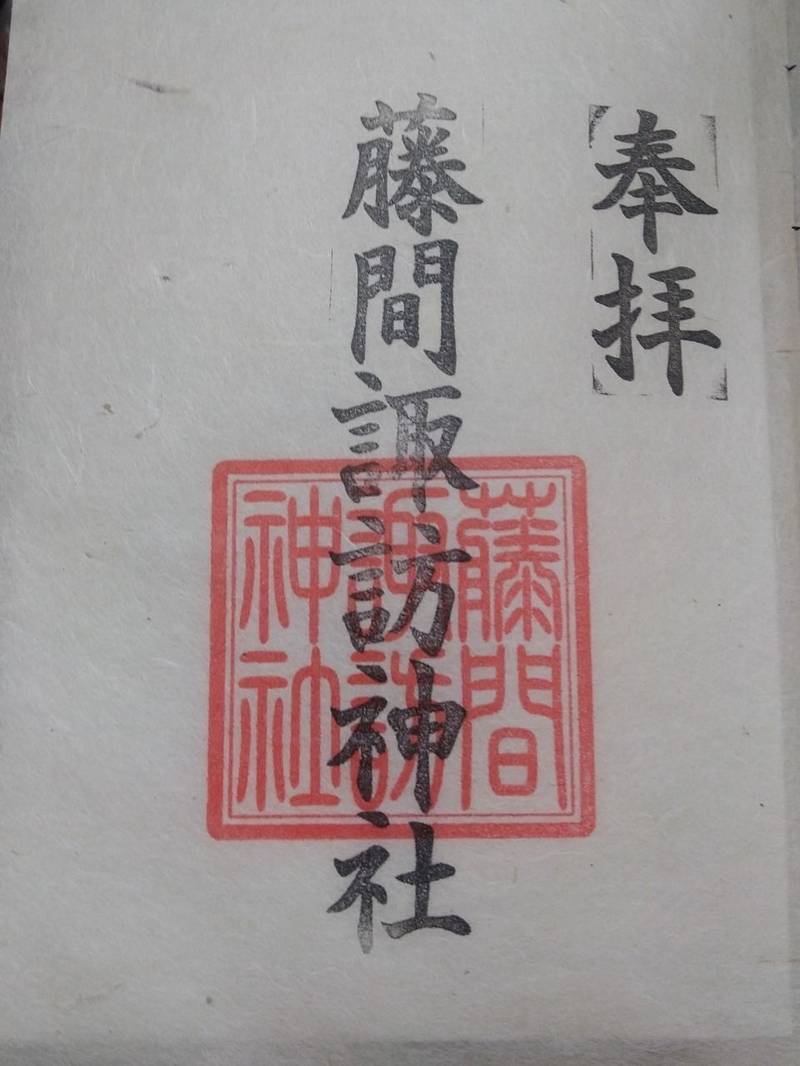 奉拝
藤間諏訪神社
藤間
諏訪
神社